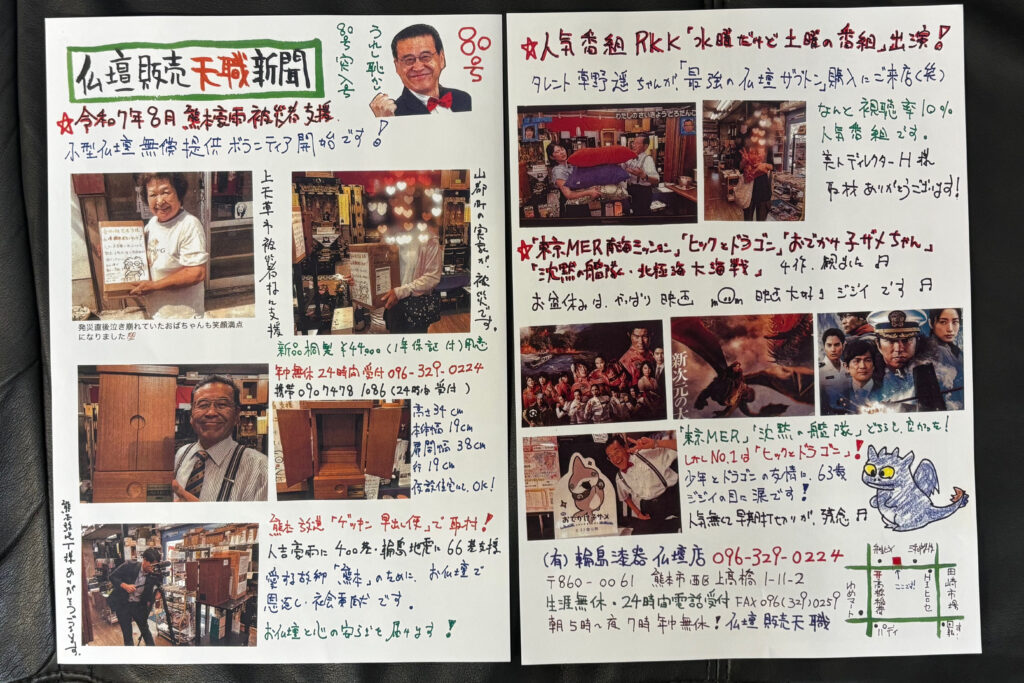 仏壇販売天職新聞
80号
80号突入号
うれし恥かし
☆令和7年8月 熊本豪雨被災者支援
小型仏壇無償提供ボランティア開始です!
上天草市被災者様へ支援
山都町の実家が被災です。
発災直後泣き崩れていたおばちゃんも笑顔満点
になりました
新品桐製 ¥44,000(1年保証付)用意
年中無休24時間受付096-329-0224
携帯090 7478 1086(24時間受付)
高さ34cm
本体幅19cm
扉開幅38cm
行19cm
仮設住宅にもOK!
熊本放送「ゲツキン早出し便」で取材!
人吉豪雨に400基・輪島地震に66基支援
愛する故郷「熊本」のために、お仏壇で
恩返し・社会貢献です。
お仏壇と心の安らぎを届けます!
ありがとうございます。
☆人気番組RKK「水曜だけど土曜の番組」出演!
タレント草野遥ちゃんが「最強の仏壇ザブトン」購入にご来店(笑)
わたしのさいきょうどろだんご
なんと視聴率10%
人気番組です。
美人ディレクターH様
取材ありがとうございます!
☆「東京MER南海ミッション」「ヒックとドラゴン」「おでかけ子ザメちゃん」
「沈黙の艦隊・北極海大海戦」 4作、観ました♫
お盆休みは、やっぱり映画 映画大好きジジイです♫
新次元の
おでかけ子ザメ
「東京MER」「沈黙の艦隊」どちらも、良かった!
しかしNo.1は「ヒックとドラゴン」!
少年とドラゴンの友情に、63歳
ジジイの目に涙です!
人気無くて早期打切りが、残念♫
(有)輪島漆器仏壇店 096-329-0224
〒860-0061 熊本市西区上高橋1-11-2
生涯無休・24時間電話受付 FAX096(329)0259
朝5時〜夜7時年中無休!仏壇販売天職
ここ!
田崎市場